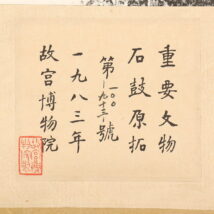 重要文物
石鼓原拓
第一〇〇一九十三號
一九八三年
故宫博物院